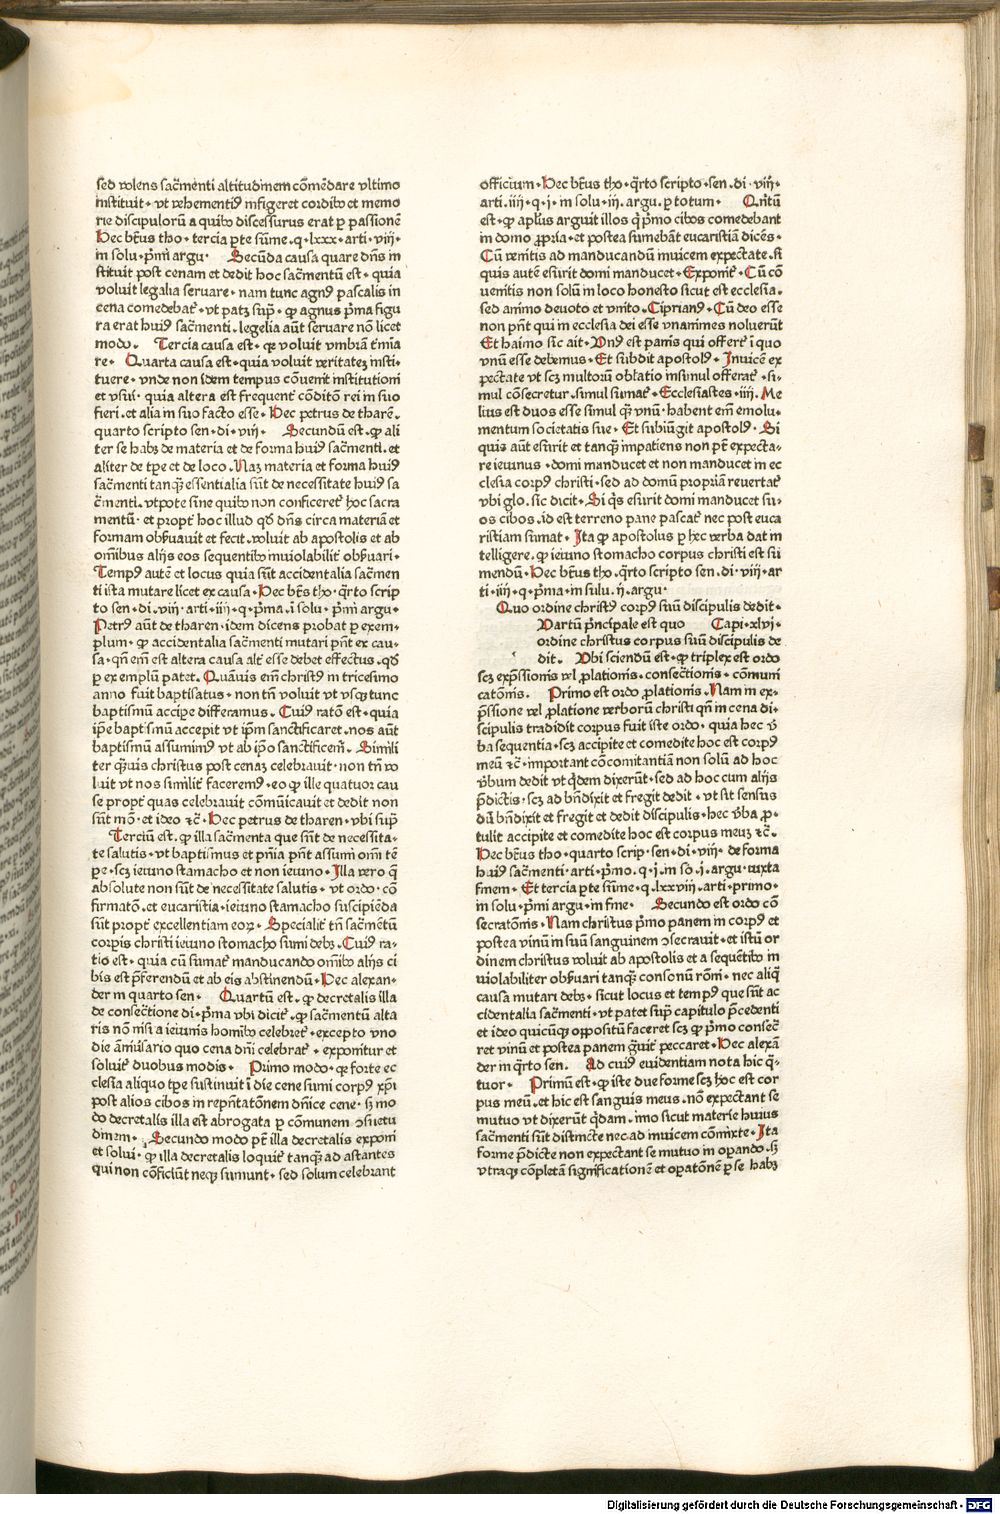 sed volens sac̃menti altitudinem cõmẽdare vltimo
instituit · vt vehementiꝰ infigeret cordibꝰ et memo
rie discipulorũ a quibꝰ discessurus erat ꝑ passionẽ
Hec bt̃us tho · tercia ꝑte sũme · q · lxxx · arti · viij ·
in solu · pͥmi argu · Secũda causa quare dñs in
stituit post cenam et dedit hoc sac̃mentũ est · quia
voluit legalia seruare · nam tunc agnꝰ pascalis in
cena comedebat᷑ · vt patꝫ supͣ · ꝙ agnus pͥma figu
ra erat huiꝰ sac̃menti · legelia aũt seruare nõ licet
modo · Tercia causa est · ꝙ voluit vmbrã t̃mĩa
re · Quarta causa est · quia voluit veritatẽ insti-
tuere · vnde non idem tempus cõuenit institutioni
et vsui · quia altera est frequent᷑ cõditõ rei in suo
fieri · et alia in suo facto esse · Hec petrus de tharẽ ·
quarto scripto sen · di · viij · Secundũ est · ꝙ ali
ter se habꝫ de materia et de forma huiꝰ sac̃menti · et
aliter de tꝑe et de loco · Naꝫ materia et forma huiꝰ
sac̃menti tanqͣꝫ essentialia sũt de necessitate huiꝰ sa
c̃menti · vtpote sine quibꝰ non conficeret᷑ hoc sacra
mentũ · et propt᷑ hoc illud qď dñs circa materiã et
formam obẜuauit et fecit · voluit ab apostolis et ab
om̃ibus alijs eos sequentibꝰ inuiolabilit᷑ obẜuari ·
Tempꝰ autẽ et locus quia sũt accidentalia sac̃men
ti ista mutare licet ex causa · Hec bt̃s tho · qͣrto scrip
to sen · di · viij · arti · iiij · q · pͥma · ĩ solu · pͥmi argu ·
Petrꝰ aũt de tharen · idem dicens probat ꝑ exem-
plum · ꝙ accidentalia sac̃menti mutari pñt ex cau-
sa · qñ em̃ est altera causa alt᷑ esse debet effectus · qď
ꝑ exemplũ patet · Quãuis em̃ christꝰ in tricesimo
anno fuit baptisatus · non tñ voluit vt vsqꝫ tunc
baptismũ accipe differamus · Cuiꝰ ratõ est · quia
ip̃e baptismũ accepit vt ip̃m sanctificaret · nos aũt
baptismũ assumimꝰ vt ab ip̃o sanctificem᷑ · Simili
ter qͣꝫuis christus post cenaꝫ celebrauit · non tñ vo
luit vt nos similit᷑ faceremꝰ · eo ꝙ ille quatuor cau
se propt᷑ quas celebrauit cõmũicauit et dedit non
sũt mõ · et ideo ⁊c̃ · Hec petrus de tharen · vbi supͣ
Terciũ est · ꝙ illa sac̃menta que sũt de necessita-
te salutis · vt baptismus et pñia pñt assumi om̃i tẽ
pe · scꝫ ieiuno stamacho et non ieiuno · Illa vero q̃
absolute non sũt de necessitate salutis · vt ordo · cõ
firmatõ · et eucaristia · ieiuno stamacho suscipiẽda
sũt propt᷑ excellentiam eoꝝ · Specialit᷑ tñ sac̃mẽtũ
corpis christi ieiuno stomacho sumi debꝫ · Cuiꝰ ra-
tio est · quia cũ sumat᷑ manducando om̃ibꝰ alijs ci
bis est pͣferendũ et ab eis abstinendũ · Hec alexan-
der in quarto sen · Quartũ est · ꝙ decretalis illa
de consecc̃tione di · pͥma vbi dicit᷑ · ꝙ sac̃mentũ alta
ris nõ nisi a ieiunis homibꝰ celebret᷑ · excepto vno
die ãniũsario quo cena dñi celebrat᷑ · exponitur et
soluit᷑ duobus modis · Primo modo · ꝙ forte ec
clesia aliquo tꝑe sustinuit ĩ die cene sumi corpꝰ xp̃i
post alios cibos in repñtatõnem dñice cene · sꝫ mo
do decretalis illa est abrogata ꝑ cõmunem ↄsuetu
dinem · Secundo modo pt̃ illa decretalis exponi
et solui · ꝙ illa decretalis loquit᷑ tanqͣꝫ ad astantes
qui non cõficiũt neqꝫ sumunt · sed solum celebrant
officium · Hec bt̃us tho · qͣrto scripto · sen · di · viij ·
arti · iiij · q · j · in solu · iij · argu · ꝑ totum · Qũtũ
est · ꝙ apl̃us arguit illos q̃ pͥmo cibos comedebant
in domo ꝓpria · et postea sumebãt eucaristiã dicẽs ·
Cũ venitis ad manducandũ inuicem expectate · si
quis autẽ esurit domi manducet · Exponit᷑ · Cũ cõ
uenitis non solũ in loco honesto sicut est ecclesia ·
sed animo deuoto et vnito · Ciprianꝰ · Cũ deo esse
non pñt qui in ecclesia dei esse vnanimes noluerũt
Et haimo sic ait · Vnꝰ est panis qui offert᷑ ĩ quo
vnũ esse debemus · Et subdit apostolꝰ · Inuicẽ ex
pectate vt scꝫ multorũ obl̃atio insimul offerat᷑ · si-
mul cõsecretur · simul sumat᷑ · Ecclesiastes · iiij · Me
lius est duos esse simul qͣꝫ vnũ · habent em̃ emolu-
mentum societatis sue · Et subiũgit apostolꝰ · Si
quis aũt esurit et tanqͣꝫ impatiens non pt̃ expecta-
re ieiunus · domi manducet et non manducet in ec
clesia corpꝰ christi · sed ad domũ propriã reuertat᷑
vbi glo · sic dicit · Si qͥs esurit domi manducet su-
os cibos · id est terreno pane pascat᷑ nec post euca
ristiam sumat · Ita ꝙ apostolus ꝑ hec verba dat in
telligere · ꝙ ieiuno stomacho corpus christi est su
mendũ · Hec bt̃us tho · qͣrto scripto sen · di · viij · ar
ti · iiij · q · pͥma · in sulu · ij · argu ·
Quo ordine christꝰ corpꝰ suũ discipulis dedit ·
Vartũ pͥncipale est quo Capi · xlvj ·
ordine christus corpus suũ discipulis de
dit · Vbi sciendũ est · ꝙ triplex est ordo
scꝫ expͣssionis vel ꝓlationis · consec̃tionis · cõmuni
catõnis · Primo est ordo ꝓlationis · Nam in ex-
pͣssione vel ꝓlatione verborũ christi qñ in cena di-
scipulis tradidit corpus fuit iste ordo · quia hec ṽ
ba sequentia · scꝫ accipite et comedite hoc est corpꝰ
meũ ⁊c̃ · important cõcomitantiã non solũ ad hoc
ṽbum dedit vt qͥdem dixerũt · sed ad hoc cum alijs
pͣdictis · scꝫ ad bñdixit et fregit dedit · vt sit sensus
dũ bñdixit et fregit et dedit discipulis · hec ṽba ꝓ-
tulit accipite et comedite hoc est corpus meuꝫ ⁊c̃ ·
Hec bt̃us tho · quarto scrip · sen · di · viij · de forma
huiꝰ sac̃menti · arti · pͥmo · q · j · in so · j · argu · iuxta
finem · Et tercia ꝑte sũme · q · lxxviij · arti · primo ·
in solu · pͥmi argu · in fine · Secundo est ordo cõ
secratõnis · Nam christus pͥmo panem in corpꝰ et
postea vinũ in suũ sanguinem ↄsecrauit · et istũ or
dinem christus voluit ab apostolis et a sequẽtibꝰ in
uiolabiliter obẜuari tanqͣꝫ consonũ rõni · nec aliqͣ
causa mutari debꝫ · sicut locus et tempꝰ que sũt ac
cidentalia sac̃menti · vt patet supͣ capitulo pͣcedenti
et ideo quicũqꝫ oppositũ faceret scꝫ ꝙ pͥmo consec̃
ret vinũ et postea panem gͣuit᷑ peccaret · Hec alexã
der in qͣrto sen · Ad cuiꝰ euidentiam nota hic qͣ-
tuor · Primũ est · ꝙ iste due forme scꝫ hoc est cor
pus meũ · et hic est sanguis meus · nõ expectant se
mutuo vt dixerũt qͥdam · imo sicut materie huius
sac̃menti sũt distincte nec ad inuicem cõmixte · Ita
forme pͣdicte non expectant se mutuo in oꝑando · sꝫ
vtraqꝫ cõpletã significationẽ et oꝑatõnẽ ꝑ se habꝫ
Digitalisierung gefördert durch die Deutsche Forschungsgemeinschaft - DFG